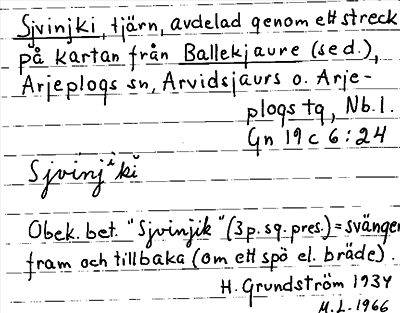 Sjvinjki, tjärn, avdelad genom ett streck
på kartan från Ballekjaure (se d.),
Arjeplogs sn, Arvidsjaurs o. Arje-
plogs tg, Nb. l.
Gn 19 c 6:24
Sjvinjˈki
Obek. bet. "Sjvinjik" (3 p. sg. pres.) = svänger
fram och tillbaka (om ett spö el. bräde).
H. Grundström 1934
M.L. 1966